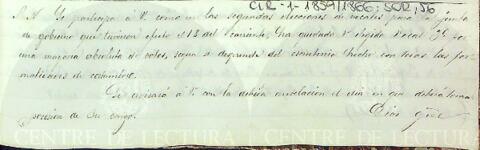 CLR-1-1859/1866; SOR, 56
S. A. Se participa á V. como en las segundas elecciones de vocales para la junta
de gobierno que tuvieron efecto el 13 del corriente, ha quedado V. elegido Vocal 2º por
una mayoria absoluta de votos, segun se desprende del escrutinio hecho con todas las for
malidades de costumbre.
Se avisará á V. con la debida antelacion el dia en que deberá tomar
posesion de su cargo.
Dios gue
CENTRE DE LECTURA
CENTRE DE LECTURA